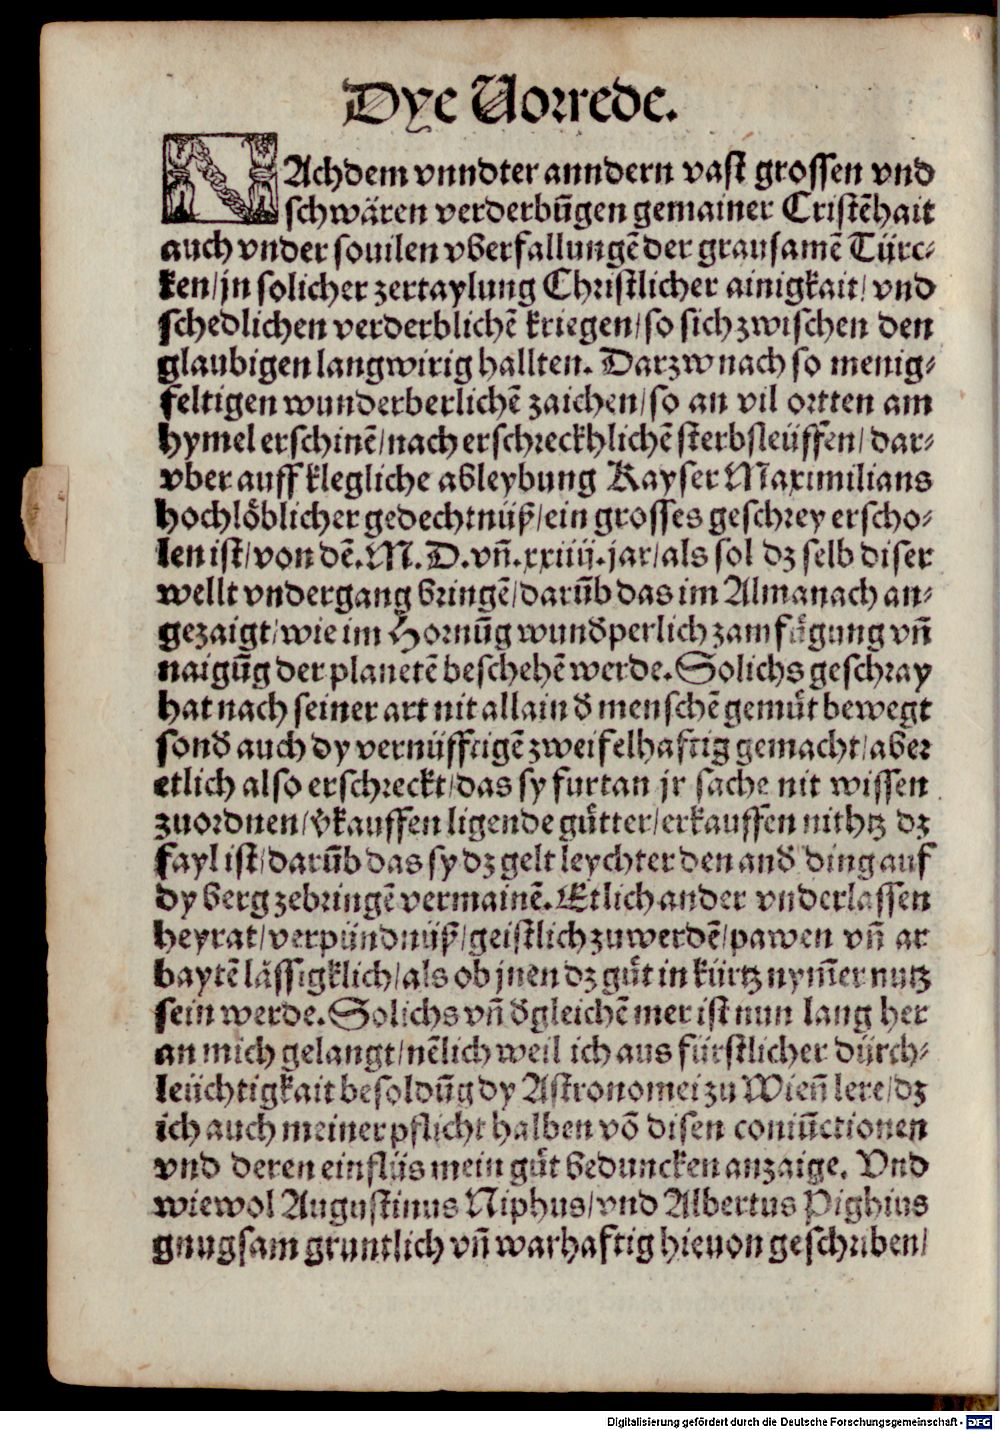 Dye Vorrede.
NAchdem vnndter anndern vast grossen vnd
schwären verderbũgen gemainer Cristẽhait
auch vnder souilen vberfallungẽ der grausamẽ Türc-
ken/ jn solicher zertaylung Christlicher ainigkait/ vnd
schedlichen verderblichẽ kriegen/ so sich zwischen den
glaubigen langwirig hallten. Darzw nach so menig-
feltigen wunderberlichẽ zaichen/ so an vil ortten am
hymel erschinẽ/ nach erschreckhlichẽ sterbsleüffen/ dar-
vber auff klegliche ableybung Kayser Maximilians
hochlöblicher gedechtnüß/ ein grosses geschrey erscho-
len ist/ von dẽ. M. D. vñ. xxiiij. jar/ als sol dz selb diser
wellt vndergang bringẽ/ darũb das im Almanach an-
gezaigt/ wie im Hornũg wundperlich zamfuͤgung vñ
naigũg der planetẽ beschehẽ werde. Solichs geschray
hat nach seiner art nit allain đ menschẽ gemuͤt bewegt
sonđ auch dy vernüfftigẽ zweifelhafftig gemacht/ aber
etlich also erschreckt/ das sy furtan jr sache nit wissen
zuordnen/ v̄kauffen ligende guͤtter/ erkauffen nithtz dz
fayl ist/ darũb das sy dz gelt leychter den anđ ding auf
dy berg zebringẽ vermainẽ. Etlich ander vnderlassen
heyrat/ verpündnüß/ geistlich zuwerdẽ/ pawen vñ ar
baytẽ lässigklich/ als ob jnen dz guͤt in kürtz nym̃er nutz
sein werde. Solichs vñ đgleichẽ mer ist nun lang her
an mich gelangt/ nẽlich weil ich aus fürstlicher dürch-
leüchtigkait besoldũg dy Astronomei zu Wieñ lere/ dz
ich auch meiner pflicht halben võ disen coniũctionen
vnd deren einflüs mein guͤt beduncken anzaige. Vnd
wiewol Augustinus Niphus/ vnd Albertus Pighius
gnugsam gruntlich vñ warhafftig hieuon geschriben/
Digitalisierung gefördert durch die Deutsche Forschungsgemeinschaft - DFG